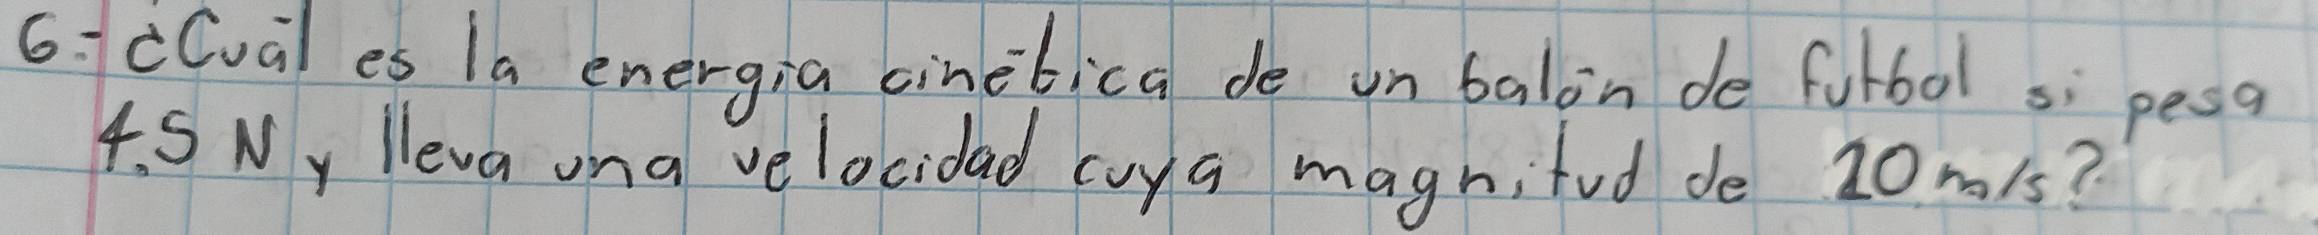 6.- ¿Cuál es la energía cinética de un balón de futbol si pesa
4.5 N y lleva una velocidad cuya magnitud de 10 m/s?